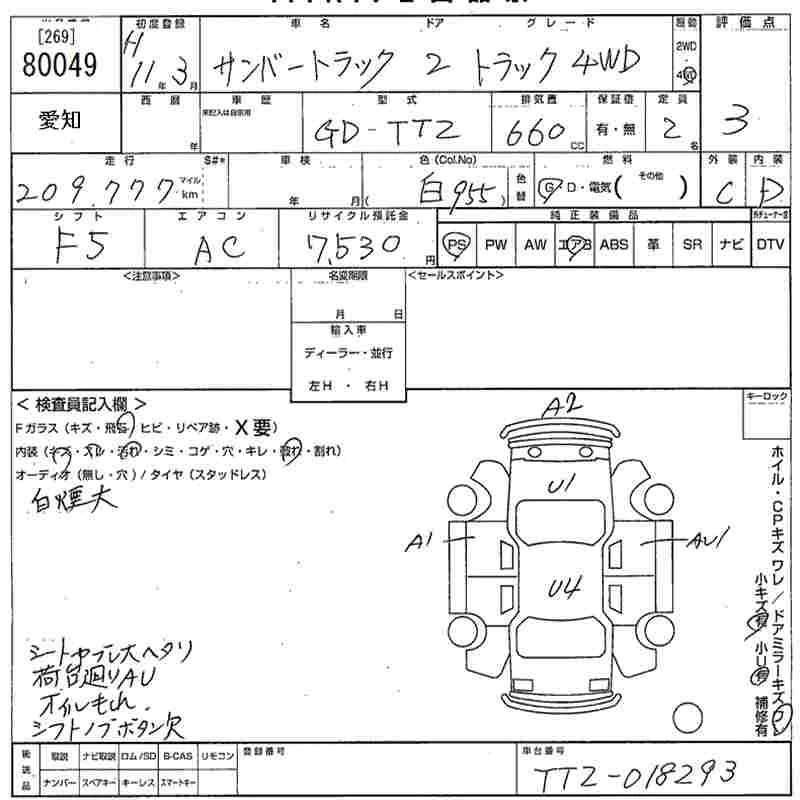 [269]
80049
初度登録
H 11年 3月
車名 ドア グレード
サンバートラック 2 トラック 4WD
駆動
2WD
4WD
評価点
3
愛知
西暦
年
車歴
未記入は自家用
型式
GD-TT2
排気量
660 CC
保証書
有・無
定員
2名
走行
209,777 マイル km
S#*
車検
年 月(
色(Col.No)
白955)
色替
燃料
G D・電気( その他 )
外装
C
内装
D
シフト
F5
エアコン
AC
リサイクル預託金
7,530円
純正装備品
PS PW AW エアB ABS 革 SR ナビ DTV
<注意事項>
名変期限
月 日
輸入車
ディーラー・並行
左H ・ 右H
<セールスポイント>
<検査員記入欄>
Fガラス(キズ・飛石 ヒビ・リペア跡・X要)
内装(キズ・スレ・汚れ・シミ・コゲ・穴・キレ・破れ・割れ)
オーディオ(無し・穴)/タイヤ(スタッドレス)
白煙大
シートヤブレ大ヘタリ
荷台廻りAU
オイルもれ.
シフトノブボタン欠
A2
U1
A1
AU1
U4
キーロック
ホイル・CPキズ ワレ/ドアミラーキズ
小キズ有 小U有 補修有
後送品
取説 ナビ取説 ロム/SD B-CAS リモコン
ナンバー スペアキー キーレス スマートキー
登録番号
車台番号
TT2-018293